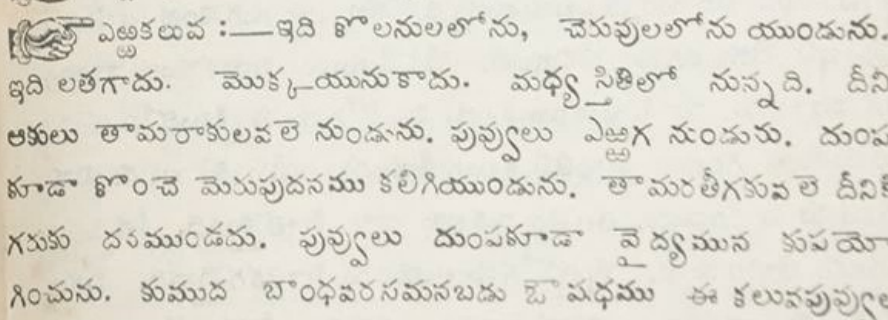 ఎఱ్ఱకలువ :—ఇది కొలనులలోను, చెరువులలోను యుండును.
ఇది లతగాదు. మొక్కయునుకాదు. మధ్యస్తితిలో నున్నది. దీని
ఆకులు తామరాకులవలె నుండును. పువ్వులు ఎఱ్ఱగ నుండును. దుంప
కూడా కొంచె మెరుపుదనము కలిగియుండును. తామరతీగకువలె దీనికి
గరుకు దనముండదు. పువ్వులు దుంపకూడా వైద్యమున కుపయో
గించును. కుముద బాంధవరసమనబడు ఔషధము ఈ కలువపువ్వుల